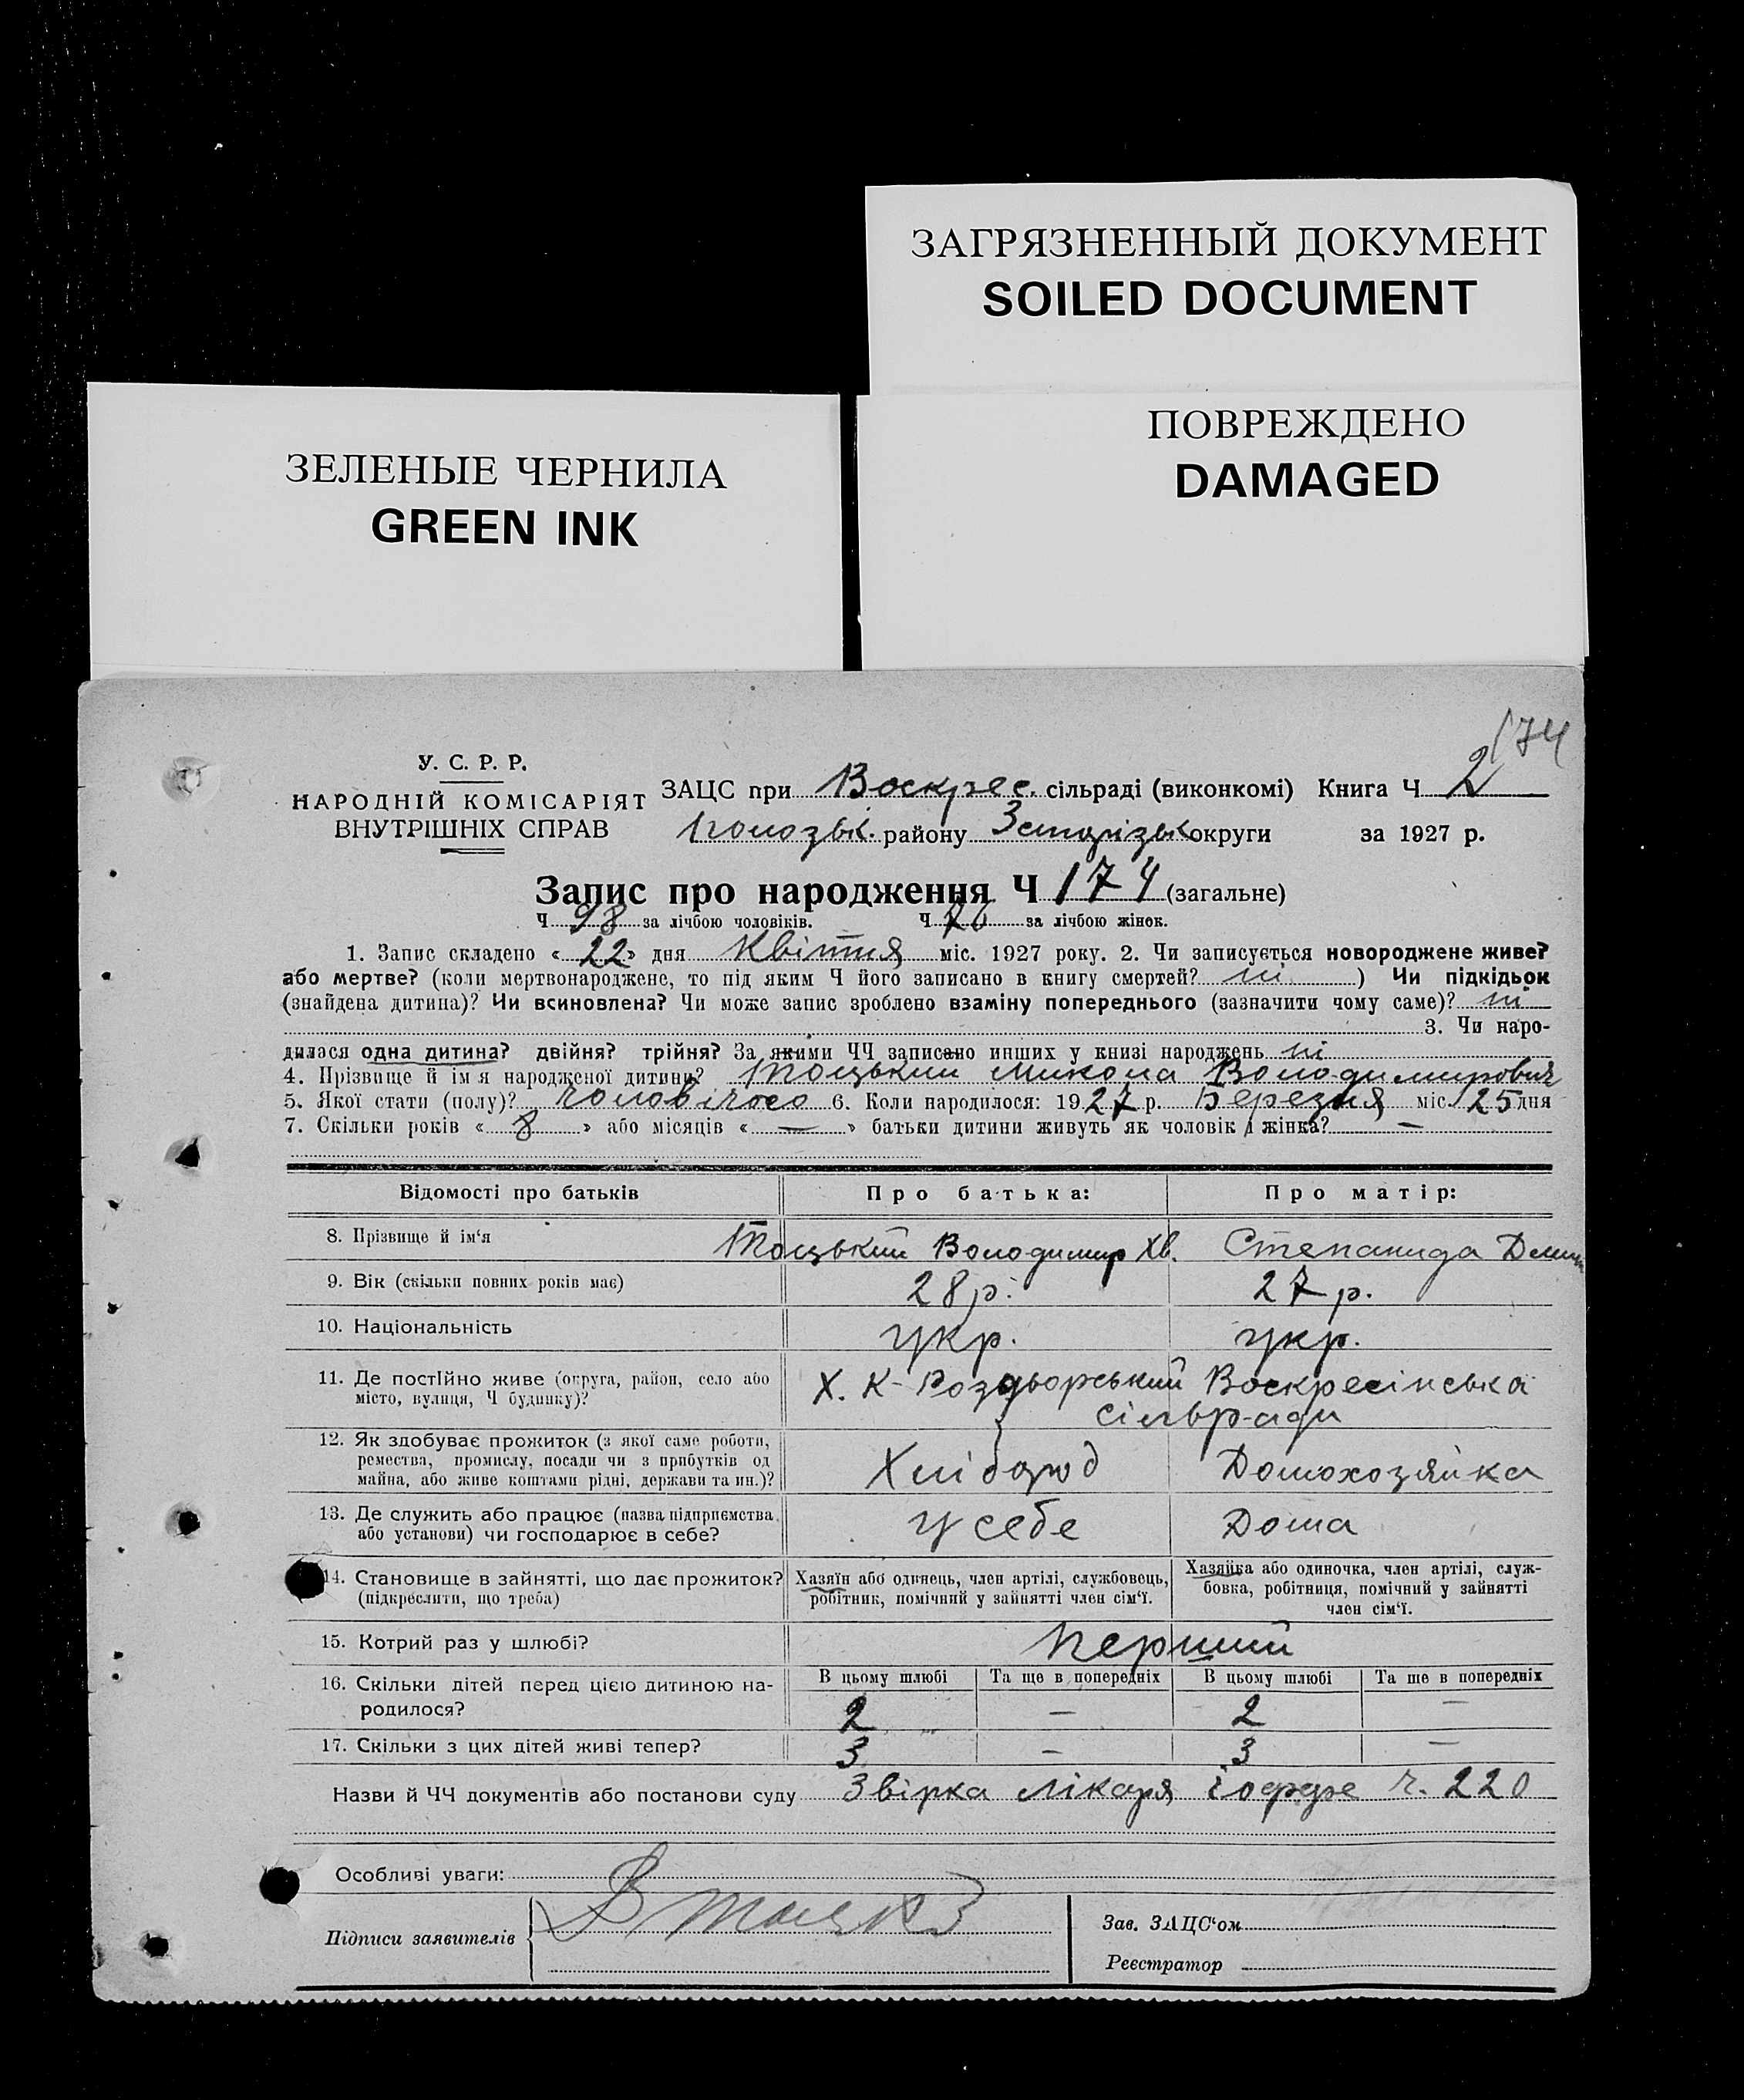 ЗАГРЯЗНЕННЫЙ ДОКУМЕНТ
SOILED DOCUMENT
ПОВРЕЖДЕНО
DAMAGED
ЗЕЛЕНЫЕ ЧЕРНИЛА
GREEN INK
174
У. С. Р. Р.
НАРОДНІЙ КОМІСАРІЯТ
ВНУТРІШНІХ СПРАВ
ЗАЦС при Воскрес. сільраді (виконкомі) Книга Ч 2
району Запорізьк округи за 1927 р.
Запис про народження Ч 174 (загальне)
Ч 98 за лічбою чоловіків. Ч 76 за лічбою жінок.
1. Запис складено « 22 » дня Квітня міс. 1927 року. 2. Чи записується новороджене живе?
або мертве? (коли мертвонароджене, то під яким Ч його записано в книгу смертей? ні ) Чи підкідьок
(знайдена дитина)? Чи всиновлена? Чи може запис зроблено взаміну попереднього (зазначити чому саме)? ні
3. Чи наро-
дилася одна дитина? двійня? трійня? За якими ЧЧ записано инших у книзі народжень ні
4. Прізвище й ім'я народженої дитини? Тоцький Микола Володимирович
5. Якої стати (полу)? чоловічого 6. Коли народилося: 1927 р. Березня міс. 25 дня
7. Скільки років « 8 » або місяців « — » батьки дитини живуть як чоловік і жінка? —
Відомості про батьків
Про батька:
Про матір:
8. Прізвище й ім'я Тоцький Володимир Хв. Степанида
9. Вік (скільки повних років має) 28 р. 27 р.
10. Національність укр. укр.
11. Де постійно живе (округа, район, село або
місто, вулиця, Ч будинку)?
Х. К-Роздьорський Воскресінська
сільради
12. Як здобуває прожиток (з якої саме роботи,
ремества, промислу, посади чи з прибутків од
майна, або живе коштами рідні, держави та ин.)?
Хлібороб Домохозяйка
13. Де служить або працює (назва підприємства
або установи) чи господарює в себе?
у себе Дома
14. Становище в зайнятті, що дає прожиток?
(підкреслити, що треба)
Хазяїн або одинець, член артілі, службовець,
робітник, помічний у зайнятті член сім'ї.
Хазяйка або одиночка, член артілі, служ-
бовка, робітниця, помічний у зайнятті
член сім'ї.
15. Котрий раз у шлюбі? перший
16. Скільки дітей перед цією дитиною на-
родилося?
В цьому шлюбі Та ще в попередніх В цьому шлюбі Та ще в попередніх
2 — 2 —
17. Скільки з цих дітей живі тепер? 3 — 3 —
Назви й ЧЧ документів або постанови суду Звірка лікаря Іоффе ч. 220
Особливі уваги:
Підписи заявителів
Зав. ЗАЦС'ом
Реєстратор